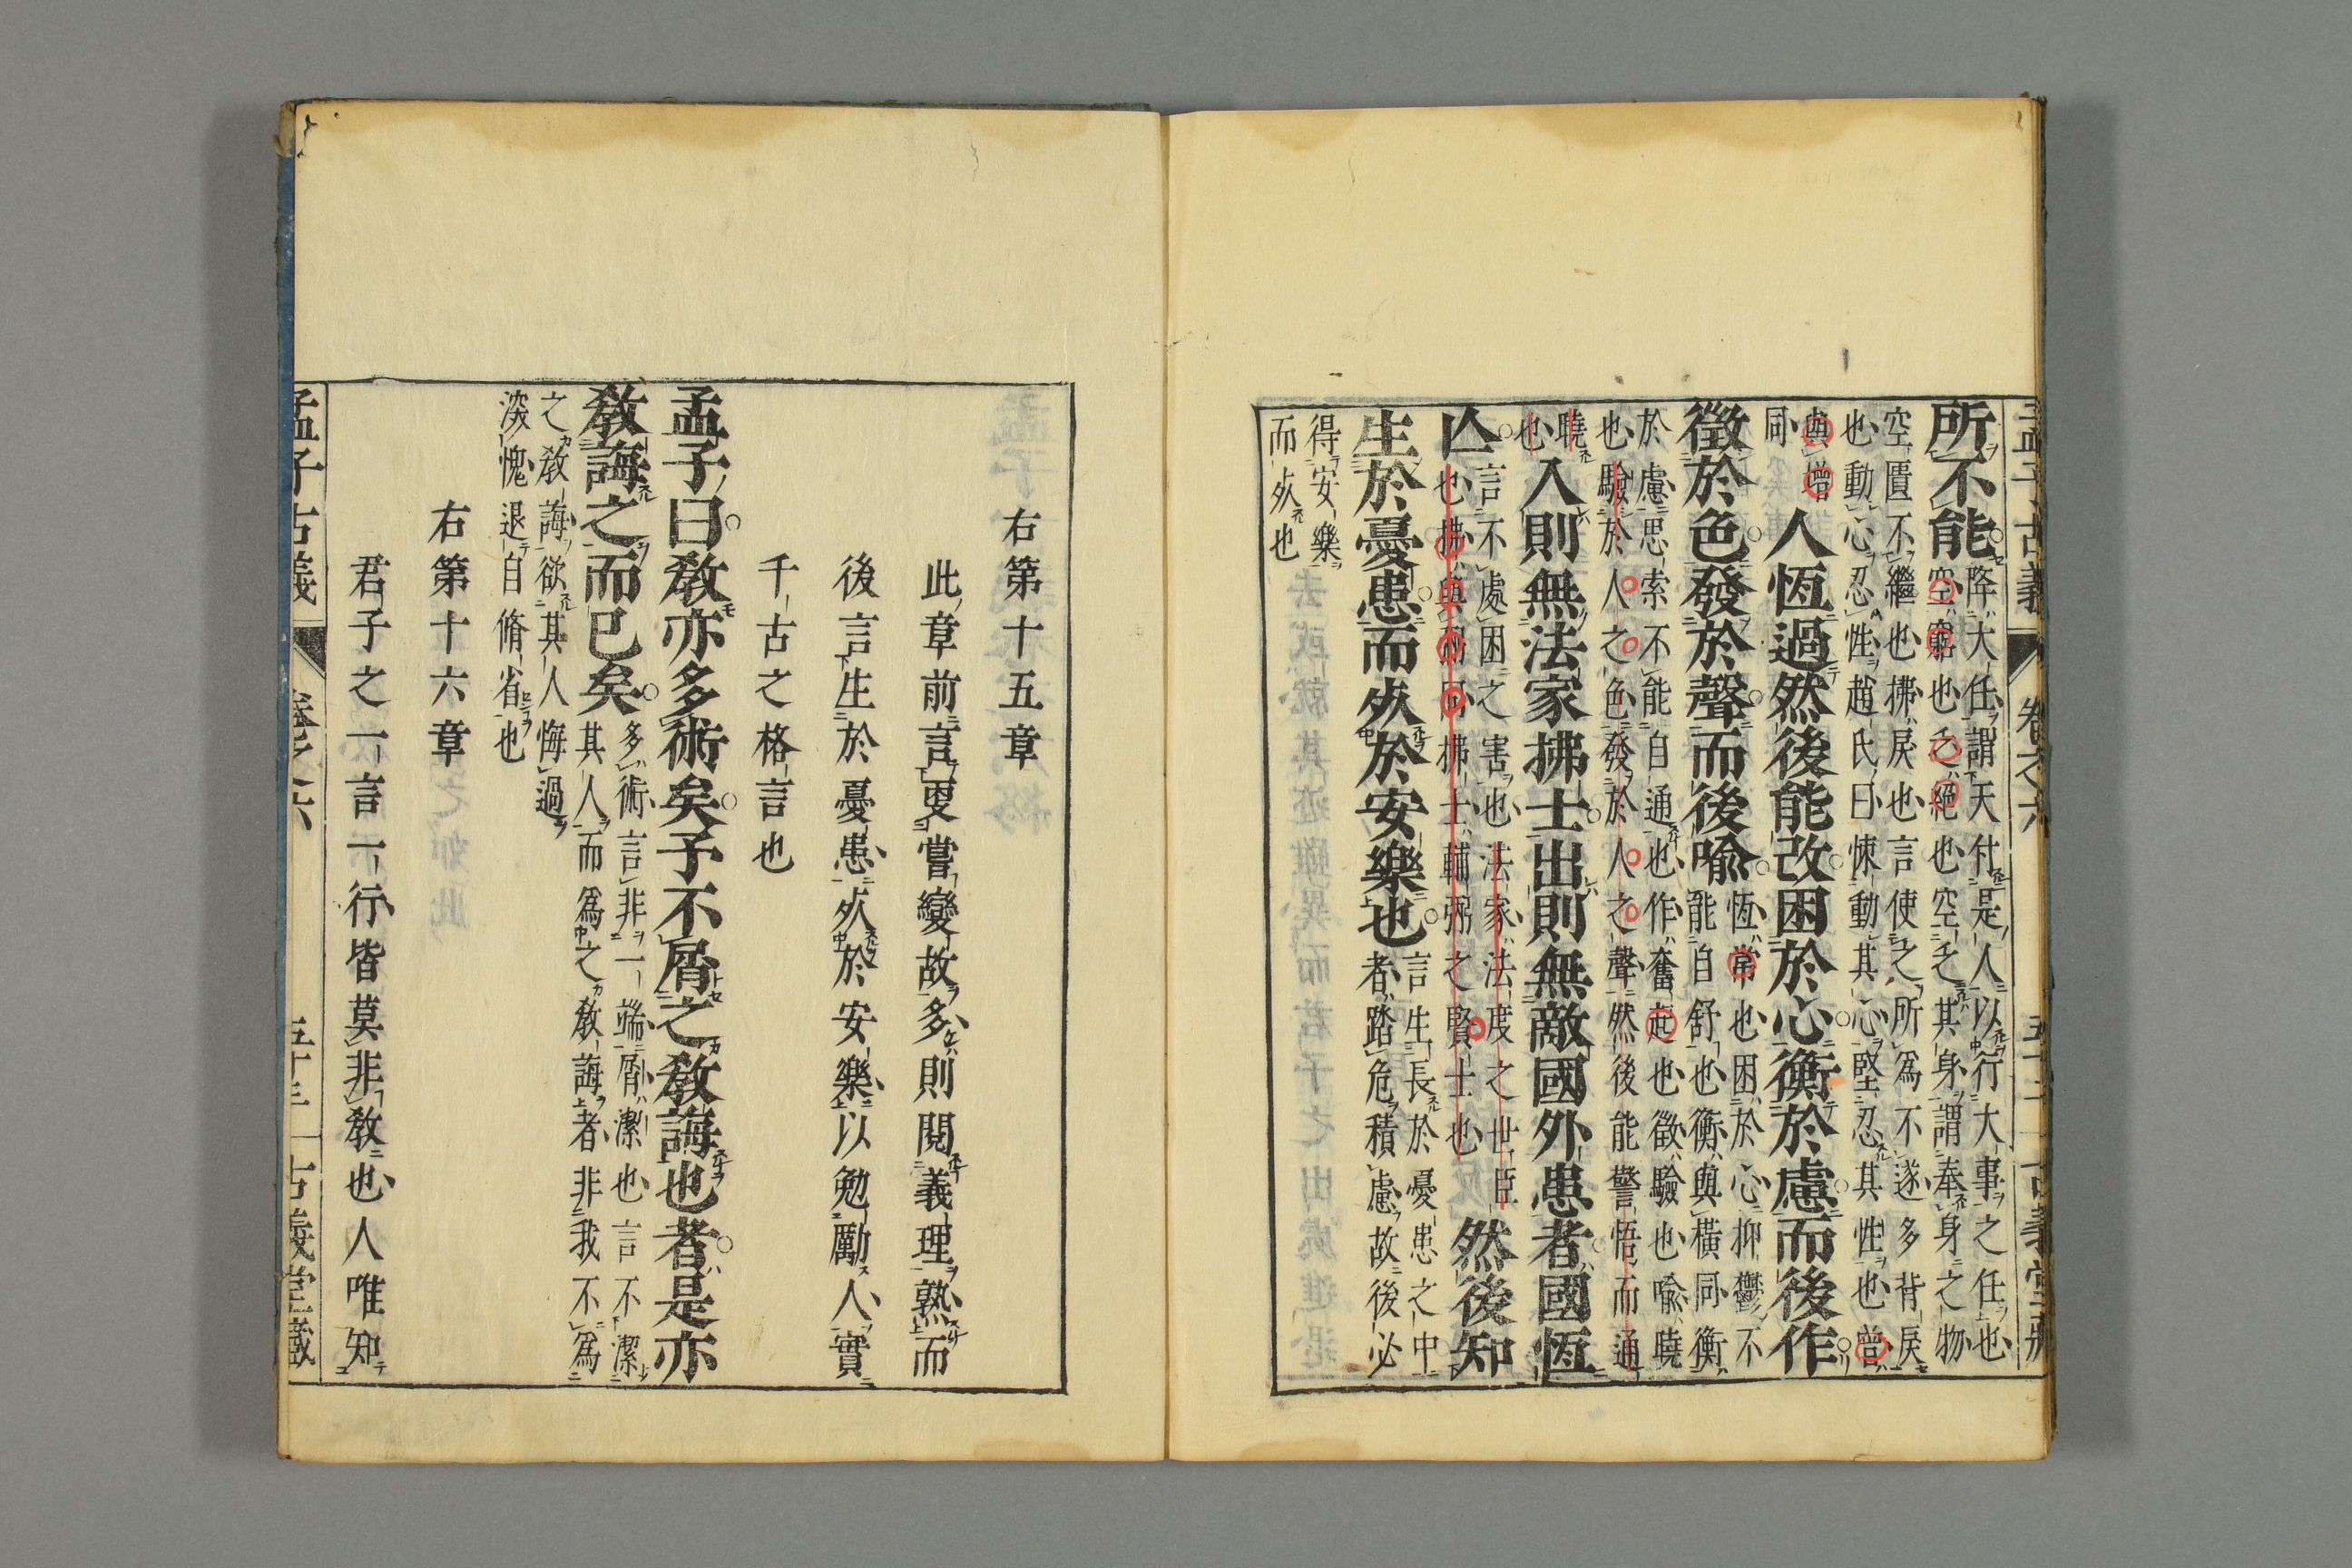 孟子古義 卷之六 五十二 古義堂藏
所不能
降大任謂天付是人以行大事之任也
空窮也乏絕也空乏其身謂奉身之物
空匱不繼也拂戾也言使之所爲不遂多背戾
也動心忍性趙氏曰悚動其心堅忍其性也曾
與增
同
人恆過然後能改困於心衡於慮而後作
徵於色發於聲而後喻
恆常也困於心抑鬱不
能自舒也衡與橫同衡
於慮思索不能自通也作奮起也徵驗也喻曉
也驗於人之色發於人之聲然後能警悟而通
曉
也
入則無法家拂士出則無敵國外患者國恆
亾
言不處困之害也法家法度之世臣
也拂與弼同拂士輔弼之賢士也
然後知
生於憂患而死於安樂也
言生長於憂患之中
者踏危積慮故後必
得安樂
而死也
右第十五章
此章前言更嘗變故多則閱義理熟而
後言生於憂患死於安樂以勉勵人實
千古之格言也
孟子曰敎亦多術矣予不屑之敎誨也者是亦
敎誨之而已矣
多術言非一端屑潔也言不潔
其人而爲之敎誨者非我不爲
之敎誨欲其人悔過
深愧退自脩省也
右第十六章
君子之一言一行皆莫非敎也人唯知
孟子古義 卷之六 五十三 古義堂藏